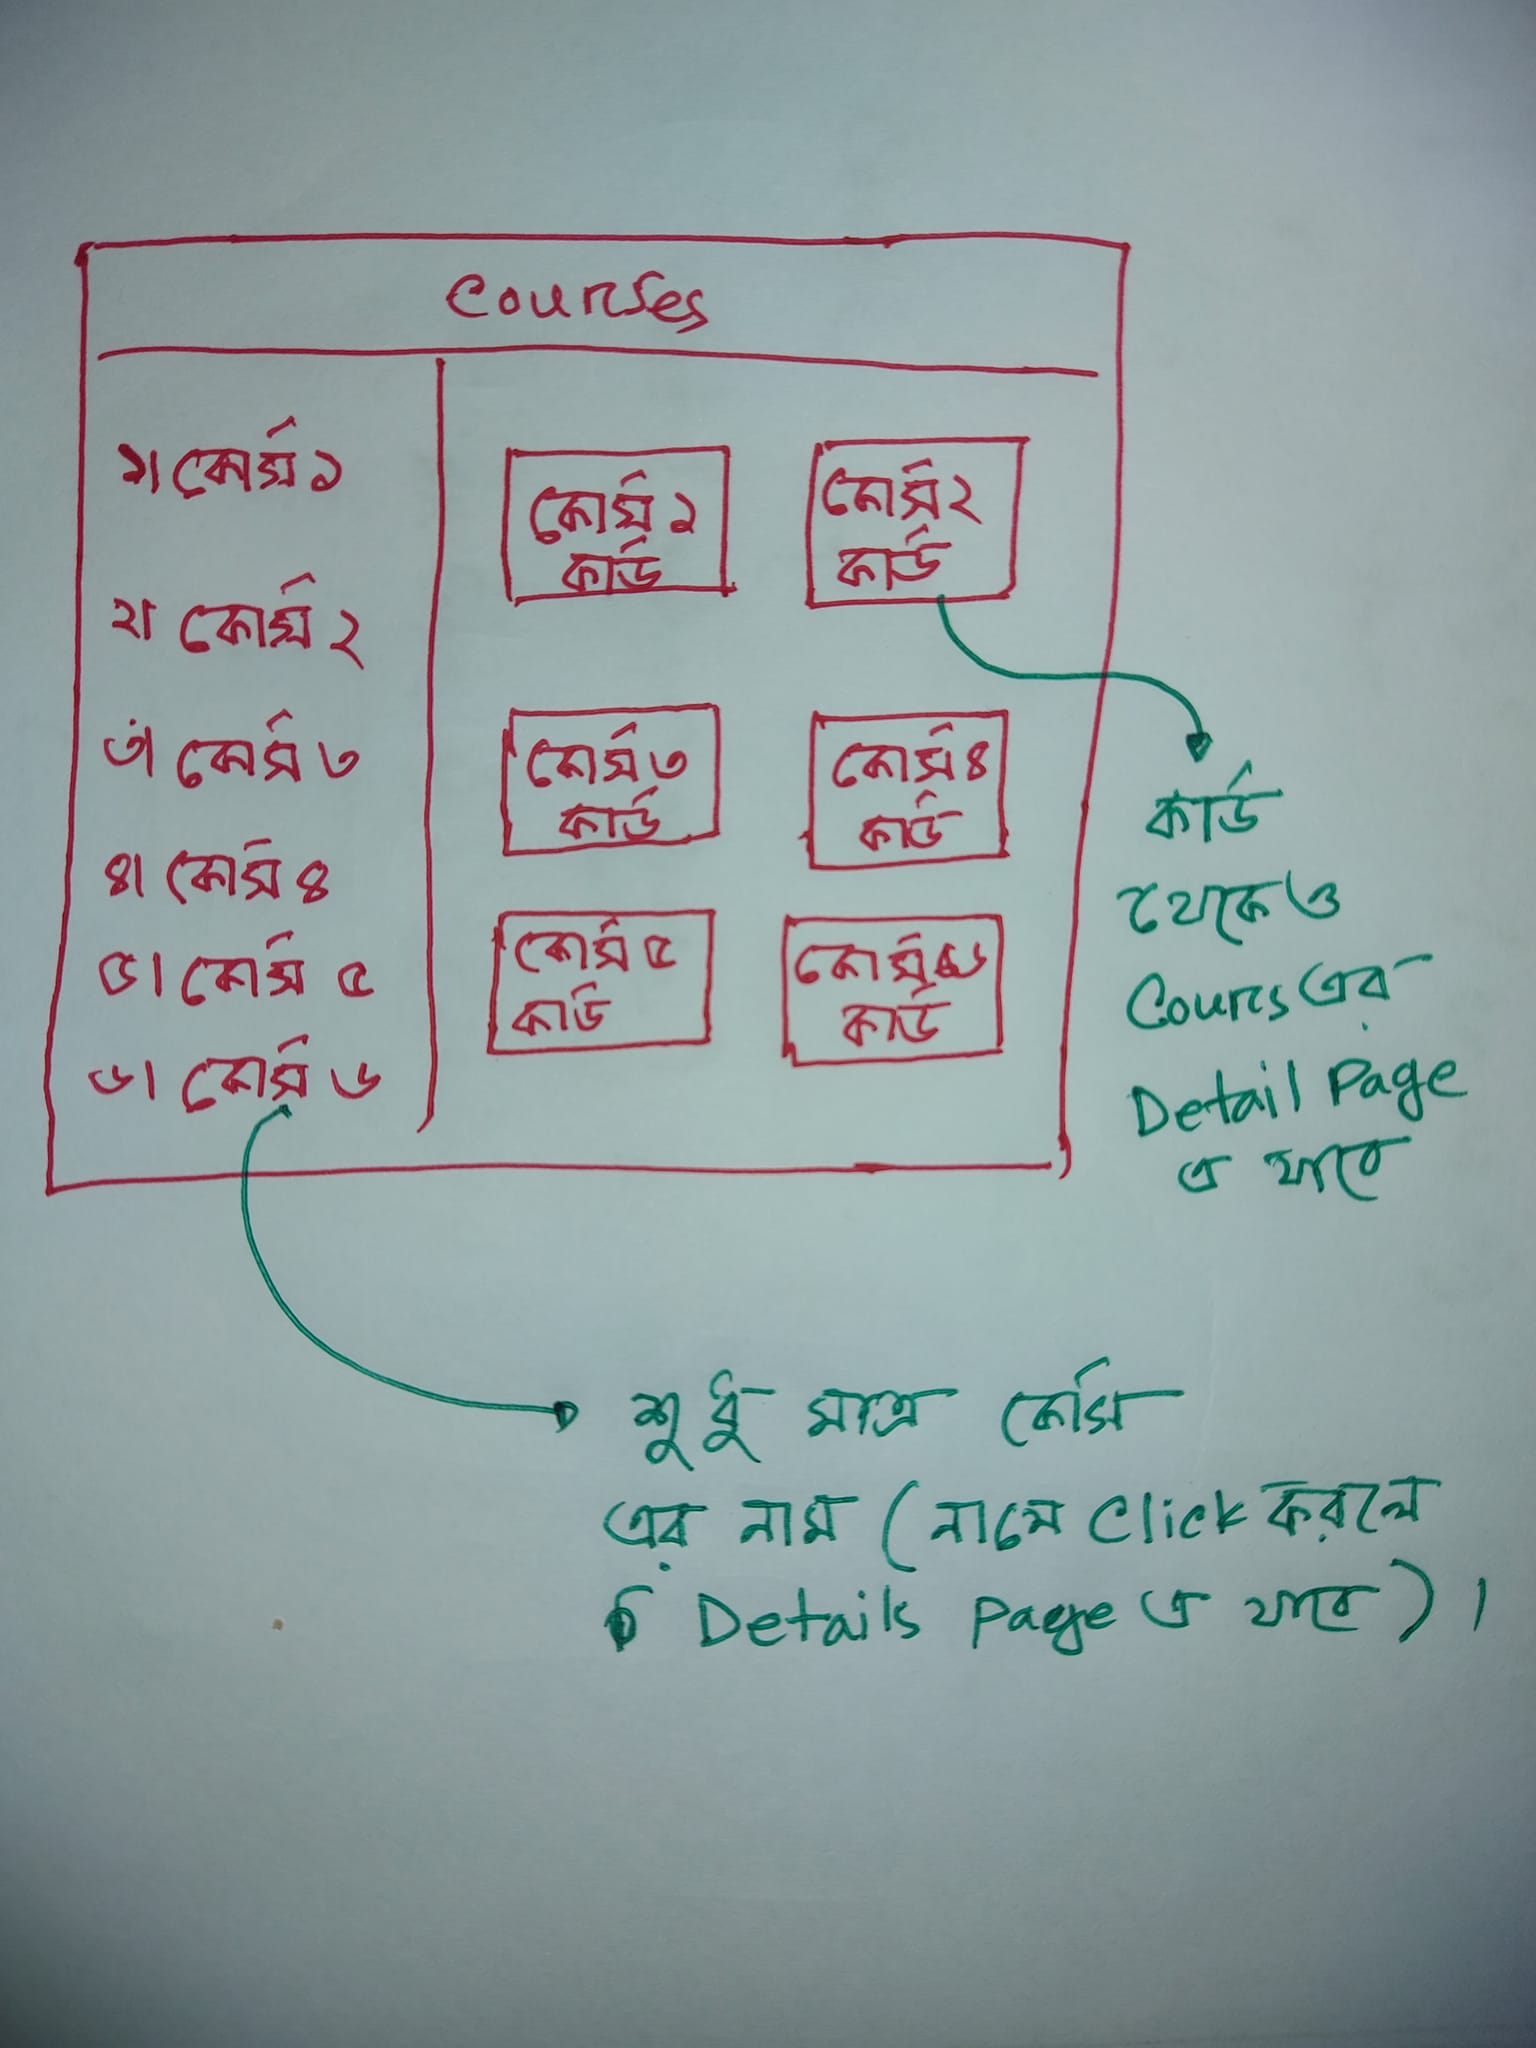 Courses
১। কোর্স ১
২। কোর্স ২
৩। কোর্স ৩
৪। কোর্স ৪
৫। কোর্স ৫
৬। কোর্স ৬
কোর্স ১
কার্ড
কোর্স ২
কার্ড
কোর্স ৩
কার্ড
কোর্স ৪
কার্ড
কোর্স ৫
কার্ড
কোর্স ৬
কার্ড
কার্ড
থেকেও
Cours এর
Detail Page
এ যাবে
শুধু মাত্র কোর্স
এর নাম (নামে Click করলে
Details Page এ যাবে)।